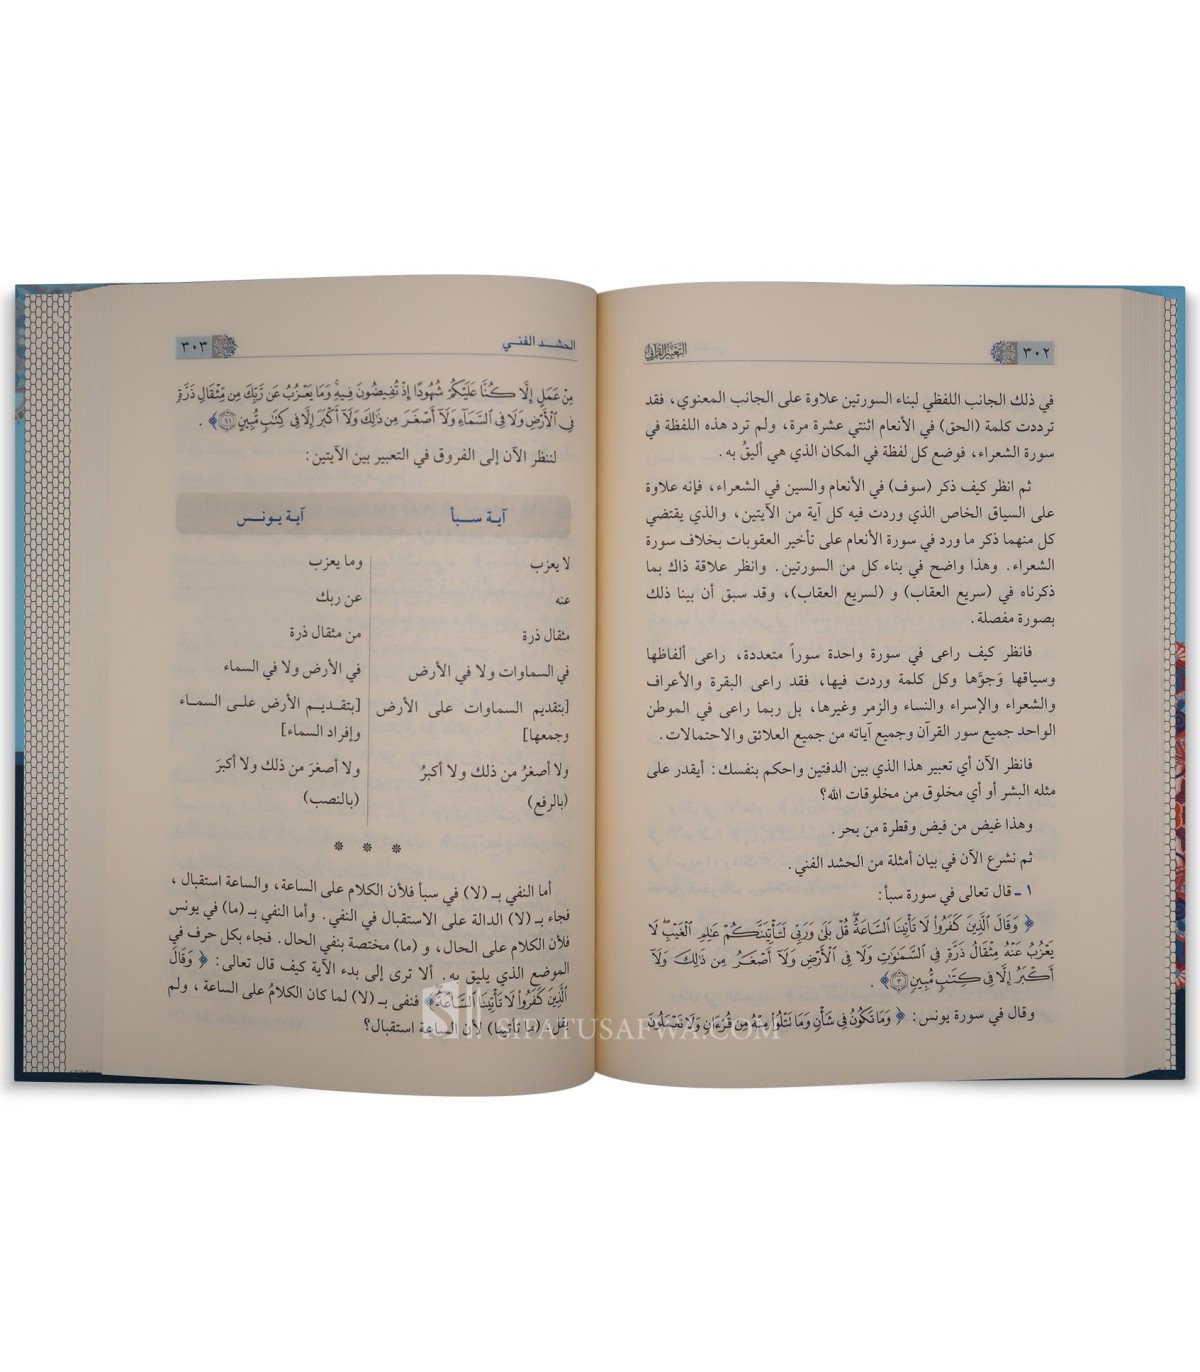 ٣٠٢
التعبير القرآني
في ذلك الجانب اللفظي لبناء السورتين علاوة على الجانب المعنوي، فقد
ترددت كلمة (الحق) في الأنعام اثنتي عشرة مرة، ولم ترد هذه اللفظة في
سورة الشعراء، فوضع كل لفظة في المكان الذي هي أليقُ به.
ثم انظر كيف ذكر (سوف) في الأنعام والسين في الشعراء، فإنه علاوة
على السياق الخاص الذي وردت فيه كل آية من الآيتين، والذي يقتضي
كل منهما ذكر ما ورد في سورة الأنعام على تأخير العقوبات بخلاف سورة
الشعراء. وهذا واضح في بناء كل من السورتين. وانظر علاقة ذاك بما
ذكرناه في (سريع العقاب) و (لسريع العقاب)، وقد سبق أن بينا ذلك
بصورة مفصلة.
فانظر كيف راعى في سورة واحدة سوراً متعددة، راعى ألفاظها
وسياقها وَجوَّها وكل كلمة وردت فيها، فقد راعى البقرة والأعراف
والشعراء والإسراء والنساء والزمر وغيرها، بل ربما راعى في الموطن
الواحد جميع سور القرآن وجميع آياته من جميع العلائق والاحتمالات.
فانظر الآن أي تعبير هذا الذي بين الدفتين واحكم بنفسك: أيقدر على
مثله البشر أو أي مخلوق من مخلوقات الله؟
وهذا غيض من فيض وقطرة من بحر.
ثم نشرع الآن في بيان أمثلة من الحشد الفني.
١ - قال تعالى في سورة سبأ:
﴿ وَقَالَ ٱلَّذِينَ كَفَرُوا۟ لَا تَأْتِينَا ٱلسَّاعَةُ ۖ قُلْ بَلَىٰ وَرَبِّى لَتَأْتِيَنَّكُمْ عَـٰلِمِ ٱلْغَيْبِ ۖ لَا
يَعْزُبُ عَنْهُ مِثْقَالُ ذَرَّةٍ فِى ٱلسَّمَـٰوَٰتِ وَلَا فِى ٱلْأَرْضِ وَلَآ أَصْغَرُ مِن ذَٰلِكَ وَلَآ
أَكْبَرُ إِلَّا فِى كِتَـٰبٍ مُّبِينٍ ٣﴾.
وقال في سورة يونس: ﴿ وَمَا تَكُونُ فِى شَأْنٍ وَمَا تَتْلُوا۟ مِنْهُ مِن قُرْءَانٍ وَلَا تَعْمَلُونَ
الحشد الفني
٣٠٣
مِنْ عَمَلٍ إِلَّا كُنَّا عَلَيْكُمْ شُهُودًا إِذْ تُفِيضُونَ فِيهِ ۚ وَمَا يَعْزُبُ عَن رَّبِّكَ مِن مِّثْقَالِ ذَرَّةٍ
فِى ٱلْأَرْضِ وَلَا فِى ٱلسَّمَآءِ وَلَآ أَصْغَرَ مِن ذَٰلِكَ وَلَآ أَكْبَرَ إِلَّا فِى كِتَـٰبٍ مُّبِينٍ ٦١﴾.
لننظر الآن إلى الفروق في التعبير بين الآيتين:
آية سبأ آية يونس
لا يعزب وما يعزب
عنه عن ربك
مثقال ذرة من مثقال ذرة
في السماوات ولا في الأرض في الأرض ولا في السماء
[بتقديم السماوات على الأرض [بتقديم الأرض على السماء
وجمعها] وإفراد السماء]
ولا أصغرُ من ذلك ولا أكبرُ ولا أصغرَ من ذلك ولا أكبرَ
(بالرفع) (بالنصب)
* * *
أما النفي بـ (لا) في سبأ فلأن الكلام على الساعة، والساعة استقبال،
فجاء بـ (لا) الدالة على الاستقبال في النفي. وأما النفي بـ (ما) في يونس
فلأن الكلام على الحال، و (ما) مختصة بنفي الحال. فجاء بكل حرف في
الموضع الذي يليق به. ألا ترى إلى بدء الآية كيف قال تعالى: ﴿ وَقَالَ
ٱلَّذِينَ كَفَرُوا۟ لَا تَأْتِينَا ٱلسَّاعَةُ﴾ فنفى بـ (لا) لما كان الكلامُ على الساعة، ولم
يقل: (ما تأتينا) لأن الساعة استقبال؟
SIFATUSAFWA.COM